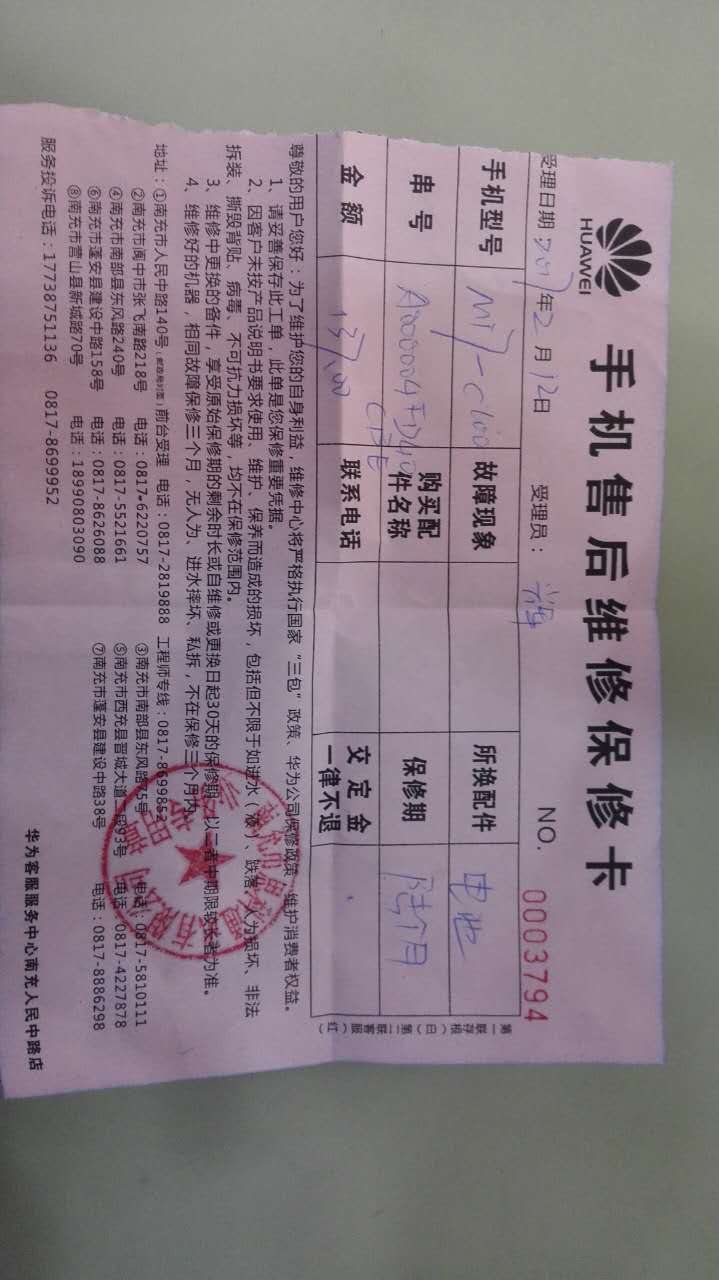 HUAWEI
手机售后维修保修卡
受理日期 2017年2月12日 受理员: NO. 0003794
手机型号 MT7-CL00 故障现象 所换配件 电池
串号 购买配件名称 保修期 陆个月
金额 137.00 联系电话 交定金一律不退
第一联存根(白)第二联客服(红)
尊敬的用户您好:为了维护您的自身利益,维修中心将严格执行国家“三包”政策、华为公司保修政策,维护消费者权益。
1、请妥善保存此工单,此单是您保修重要凭据。
2、因客户未按产品说明书要求使用、维护、保养而造成的损坏,包括但不限于如进水(液)、跌落、人为损坏、非法
拆装、撕毁背贴、病毒、不可抗力损坏等,均不在保修范围内。
3、维修中更换的备件,享受原始保修期的剩余时长或自维修或更换日起30天的保修期,以二者中期限较长者为准。
4、维修好的机器,相同故障保修三个月,无人为、进水摔坏、私拆,不在保修三个月内。
地址:①南充市人民中路140号(邮政局对面)前台受理 电话:0817-2819888 工程师专线:0817-8699852
②南充市阆中市张飞南路218号 电话:0817-6220757 ③南充市南部县东风路75号 电话:0817-5810111
④南充市南部县东风路240号 电话:0817-5521661 ⑤南充市西充县晋城大道一段93号 电话:0817-4227878
⑥南充市蓬安县建设中路158号 电话:0817-8626088 ⑦南充市蓬安县建设中路38号 电话:0817-8886298
⑧南充市营山县新城路70号 电话:18990803090
服务投诉电话:17738751136 0817-8699952
华为客服服务中心南充人民中路店